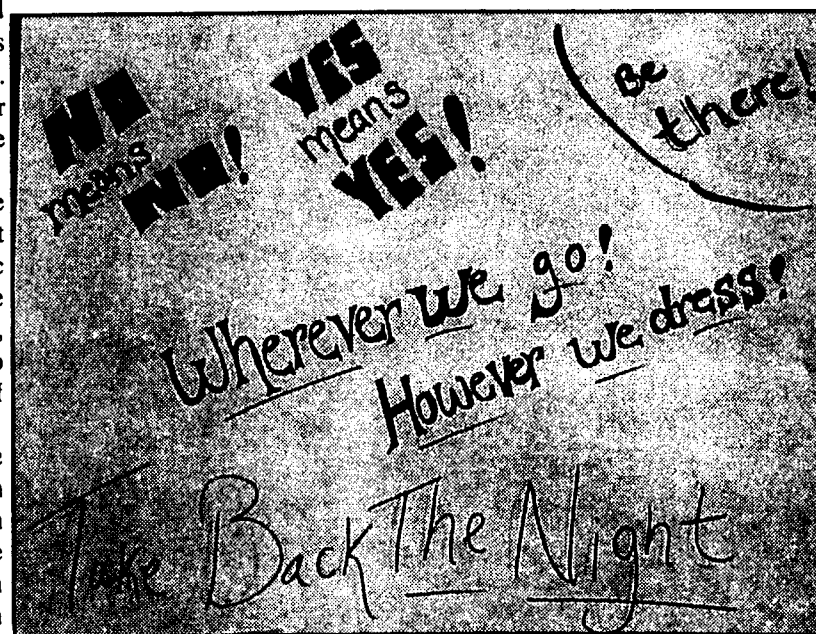 NO
means
NO!
YES
means
YES!
Be
there!
Wherever we go!
However we dress!
Take Back The Night